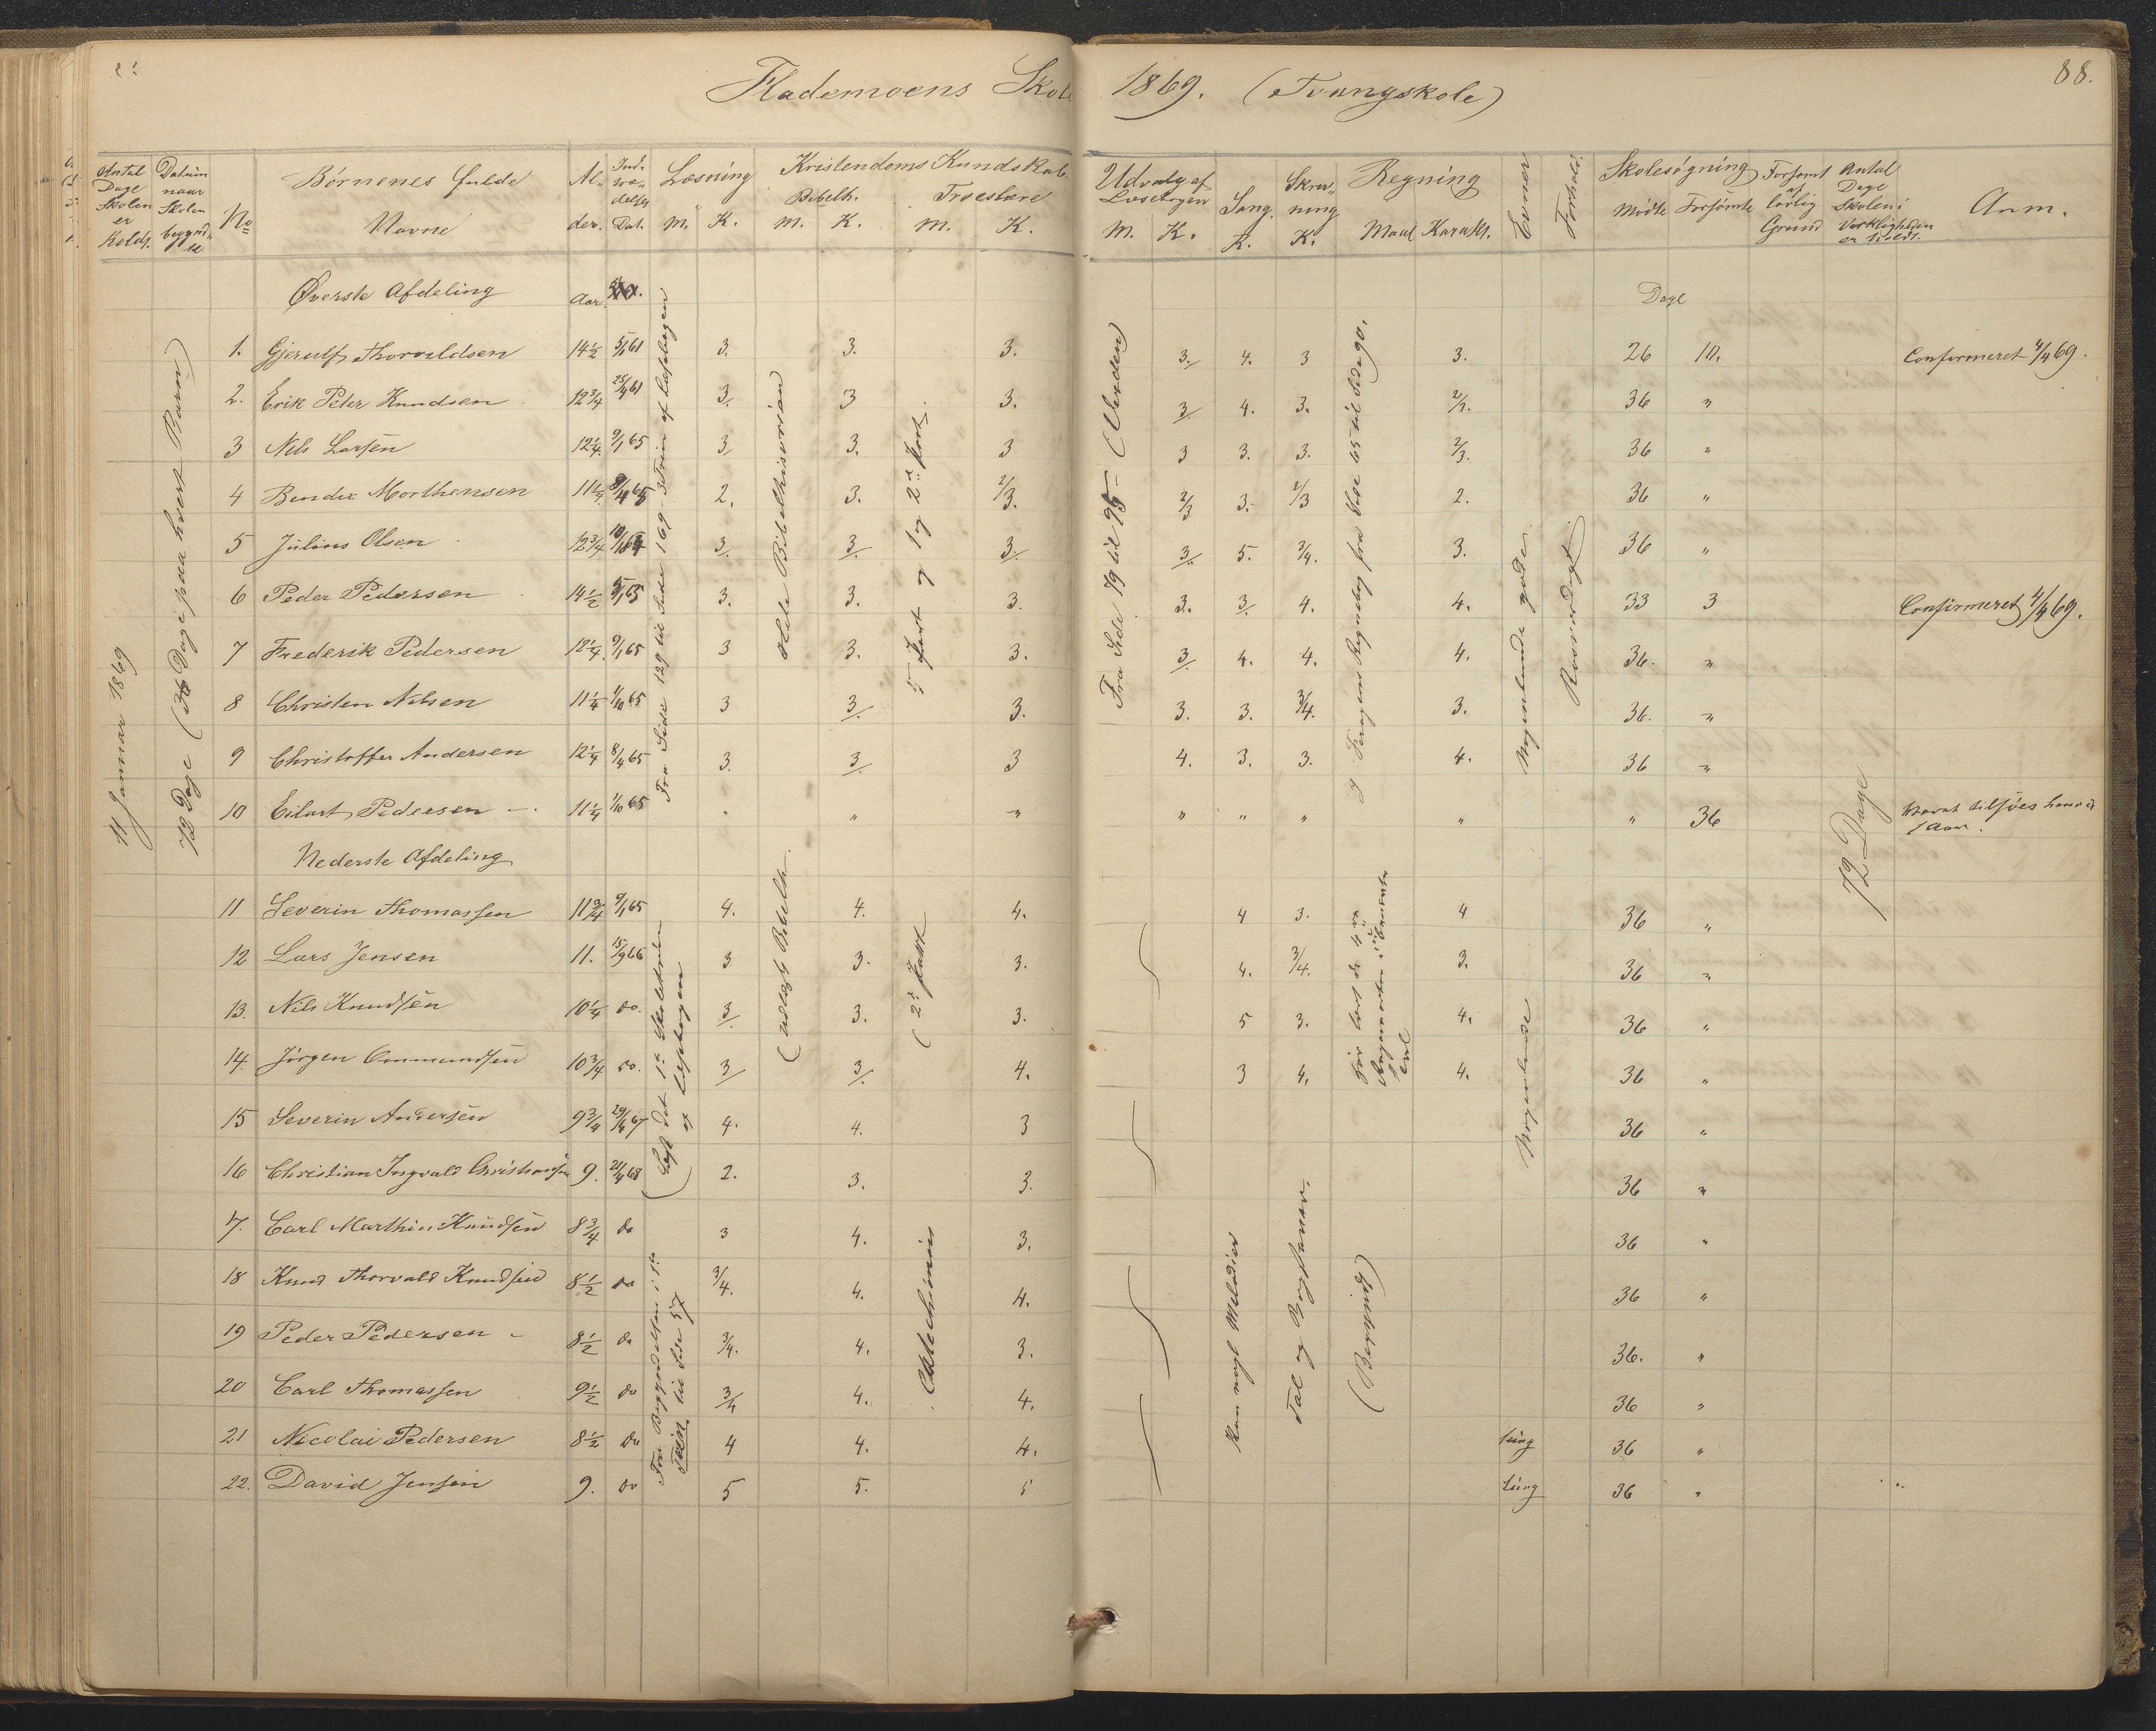 Flademoens Skole 1869. (Tvangskole)
88.
Antal Dage Skolen er Holdt.
Datum naar Skolen begyndte
No
Børnenes fulde Navne
Alder.
Indtrædelses Dat.
Læsning M. K.
Kristendoms Kundskab.
Bibelh. M. K.
Troeslære M. K.
Udvalg af Læsebogen M. K.
Sang. K.
Skrivning K.
Regning Maal Karakt.
Evner
Forhold.
Skolesøgning Mødte Forsømte
Forsømt af lovlig Grund
Antal Dage Skolen i Virkligheden er holdt.
Anm.
11 Januar 1869
72 Dage (36 Dage paa hvert Barn)
Øverste Afdeling Aar Dage
1. Gjerulf Thorvaldsen 14½ 5/1 61 3. 3. 3. 3. 4. 3 3. 26 10. Confirmeret 4/4 69.
2. Erik Peter Knudsen 12¾ 25/4 61 3. 3 3. 3/ 4. 3. 2/3. 36 "
3 Nils Larsen 12¼ 9/1 65 3/ 3. 3 3 3. 3. 2/3. 36 "
4 Bendix Morthensen 11¼ 8/4 65 2. 3. 2/3. 2/3 3. 2/3 2. 36 "
5 Julius Olsen 12¾ 3/. 3/. 3/. 3/. 5. 3/4. 3. 36 "
6 Peder Pedersen 14½ 9/1 65 3. 3. 3. 3. 3/. 4. 4. 33 3 Confirmeret 4/4 69.
7 Frederik Pedersen 12¼ 9/1 65 3 3. 3. 3/. 4. 4. 4. 36. "
8 Christen Nilsen 11¼ 1/10 65 3 3/. 3. 3. 3. 3/4. 3. 36. "
9 Christoffer Andersen 12¼ 8/4 65 3. 3/. 3 4. 3. 3. 4. 36 "
10 Eilart Pedersen 11¼ 1/10 65 " " " " " " " " 36
Fra Side 129 til Side 169 - 3 Trin af Læsebogen
Hele Bibelhistorien
5 Part og 1 og 2 Part.
Fra Side 79 til 95 - (Verden)
Nogenlunde gode.
Roesværdigt.
72 Dage
Nederste Afdeling
11 Severin Thomassen 11¾ 9/1 65 4. 4. 4. 4 3. 4 36 "
12 Lars Jensen 11. 15/9 66 3 3. 3. 4. 3/4. 3. 36 "
13. Nils Knudsen 10¼ do. 3/. 3. 3. 5 3. 4. 36 "
14. Jörgen Ommundsen 10¾ do. 3/ 3/. 4. 3 4. 4. 36 "
15 Severin Andersen 9¾ 4. 4. 3 36 "
16 Christian Ingvald Christensen 9. 21/4 68 2. 3. 3. 36 "
17. Carl Marthin Knudsen 8¾ do 3 4. 3. 36 "
18 Knud Thorvald Knudsen 8½ do 3/4. 4. 4. 36 "
19 Peder Pedersen 8½ do 3/4. 4. 3. 36. "
20 Carl Thomassen 9½ do 3/4 4. 4. 36 "
21 Nicolai Pedersen 8½ do 4 4. 4. tüng 36 "
22. David Jensen 9. do 5 5. 5 tüng 36 "
(Læst det 1ste og Læsebogen
Fra Begyndelsen i 1ste Trin til Side 57
(udvalgt Bibelh.
(2d Part
Catechismus
Kan nogle Melodier
Tal og Bogstaver.
(Begyndt)
Nogenlunde